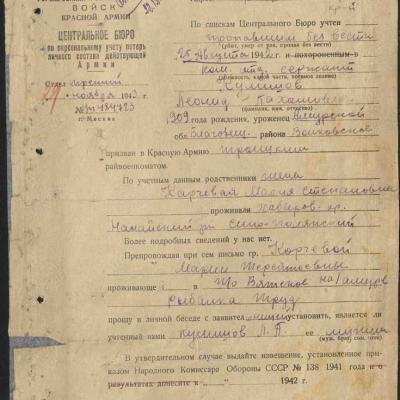 ВОЙСК
КРАСНОЙ АРМИИ
ЦЕНТРАЛЬНОЕ БЮРО
по персональному учету потерь
личного состава действующей
Армии
Отдел
ноября 1943 г.
г. Москва
По спискам Центрального Бюро учтен
пропавшим без вести
(убит, умер от ран, пропал без вести)
25 августа 1942 г. и похороненным
ком. отд. сержант
(должность, какой части, воинское звание)
Кузнецов
Леонид
(фамилия, имя, отчество)
1909 года рождения, уроженец Амурской
обл. Благовещ. района
призван в Красную Армию Троицким
райвоенкоматом.
По учетным данным родственники жена
Мария Степановна
проживали Хабаров. кр.
Нанайский р-н
Более подробных сведений у нас нет.
Препровождая при сем письмо гр. Корчевой
Марии Терентьевны
проживающе с. Вятское на/Амуре
Труд
прошу в личной беседе с заявител установить, является ли
учтенный нами Кузнецов Л. П. ее мужем
(муж, брат, сын, отец)
В утвердительном случае выдайте извещение, установленное при-
казом Народного Комиссара Обороны СССР № 138 1941 года и
о результатах донесите к „ " 1942 г.